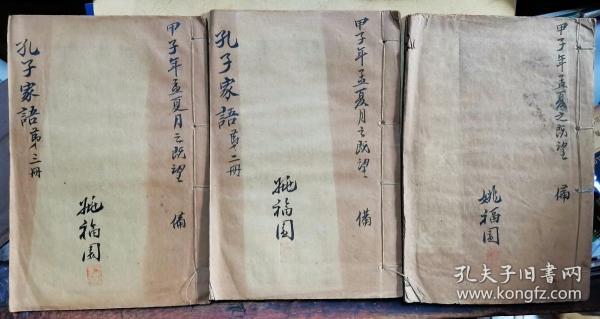 甲子年孟夏月之既望
備
孔子家語第三册
姚福園
甲子年孟夏月之既望
備
孔子家語第二册
姚福園
甲子年孟夏之既望
備
姚福園
孔夫子旧书网
www.kongfz.com